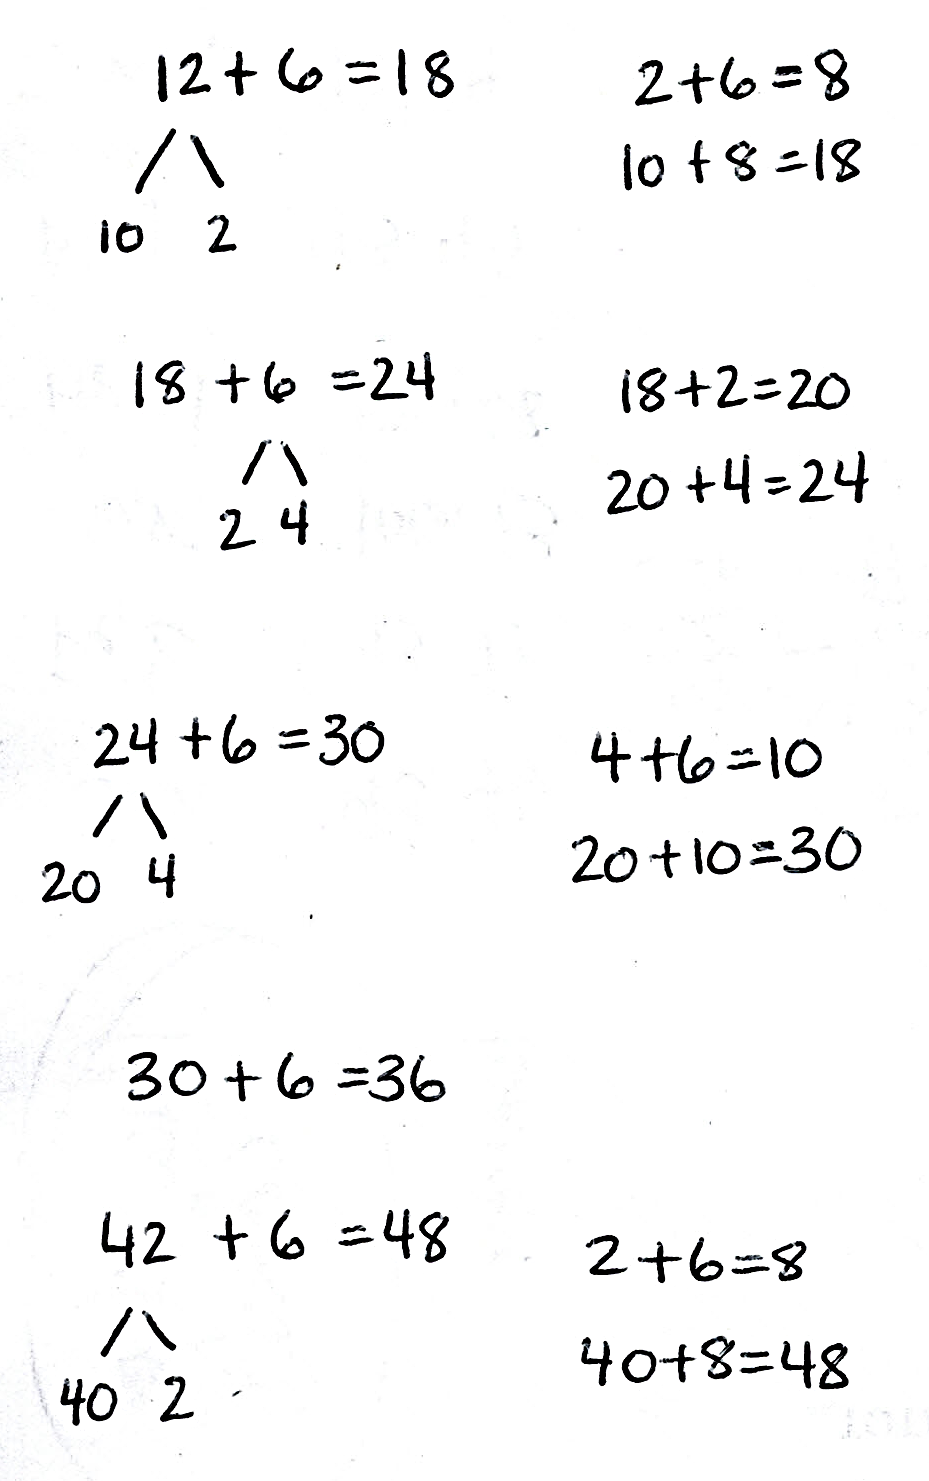 12 + 6 = 18
10 2
2 + 6 = 8
10 + 8 = 18
18 + 6 = 24
2 4
18 + 2 = 20
20 + 4 = 24
24 + 6 = 30
20 4
4 + 6 = 10
20 + 10 = 30
30 + 6 = 36
42 + 6 = 48
40 2
2 + 6 = 8
40 + 8 = 48